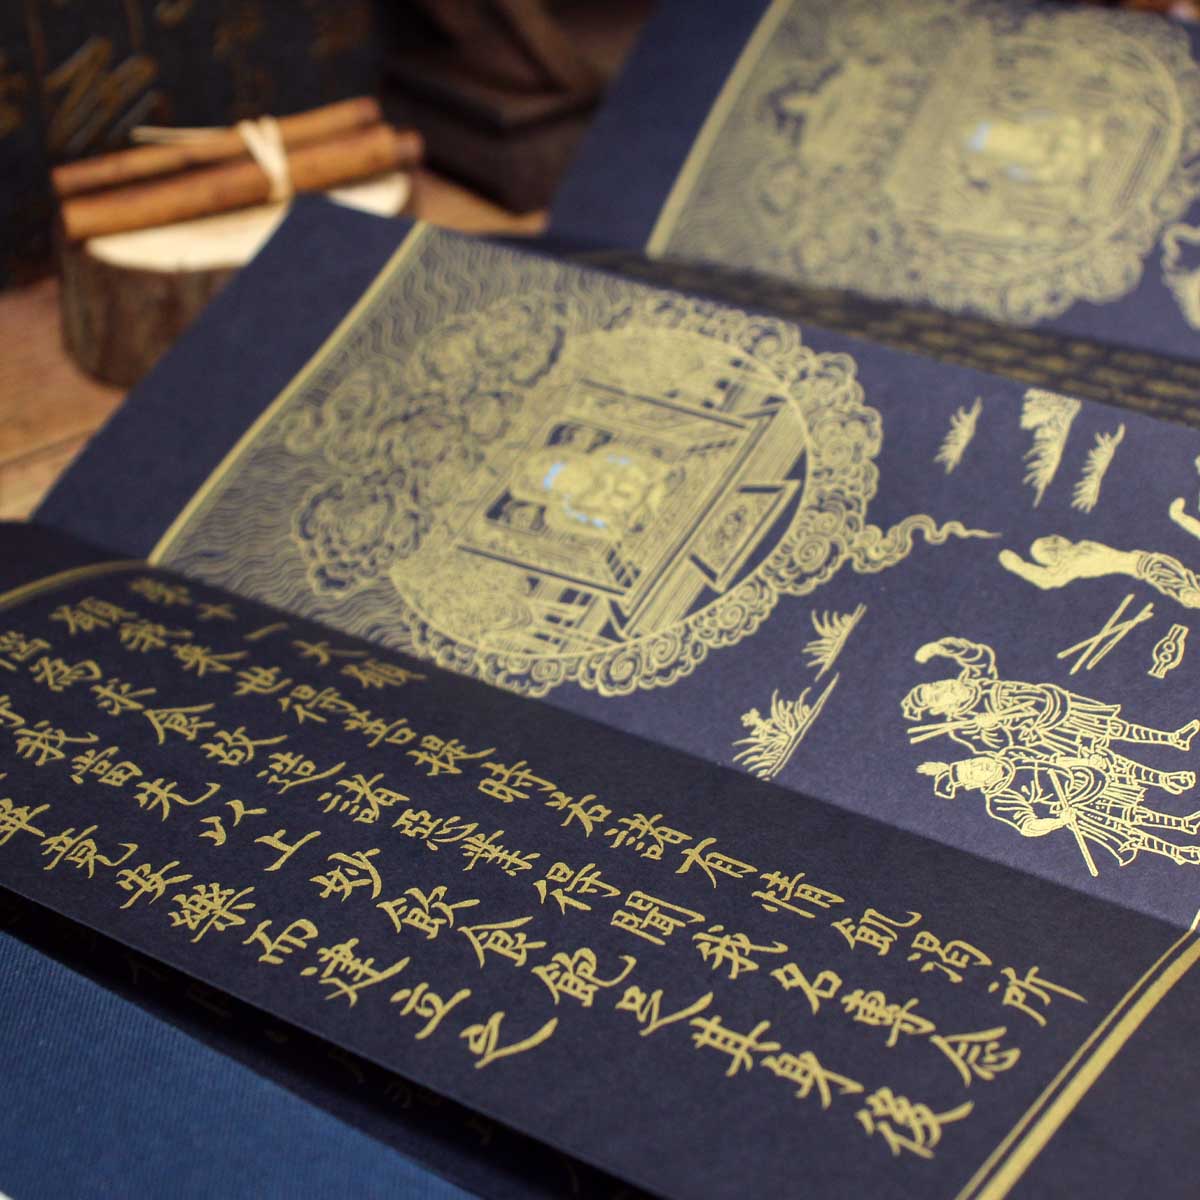 第十一大願
願我來世得菩提時若諸有情飢渴所
惱為求食故造諸惡業得聞我名專念
我當先以上妙飲食飽足其身後
畢竟安樂而建立之